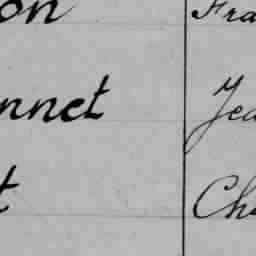 on Fra
nnet Jea
t Cha